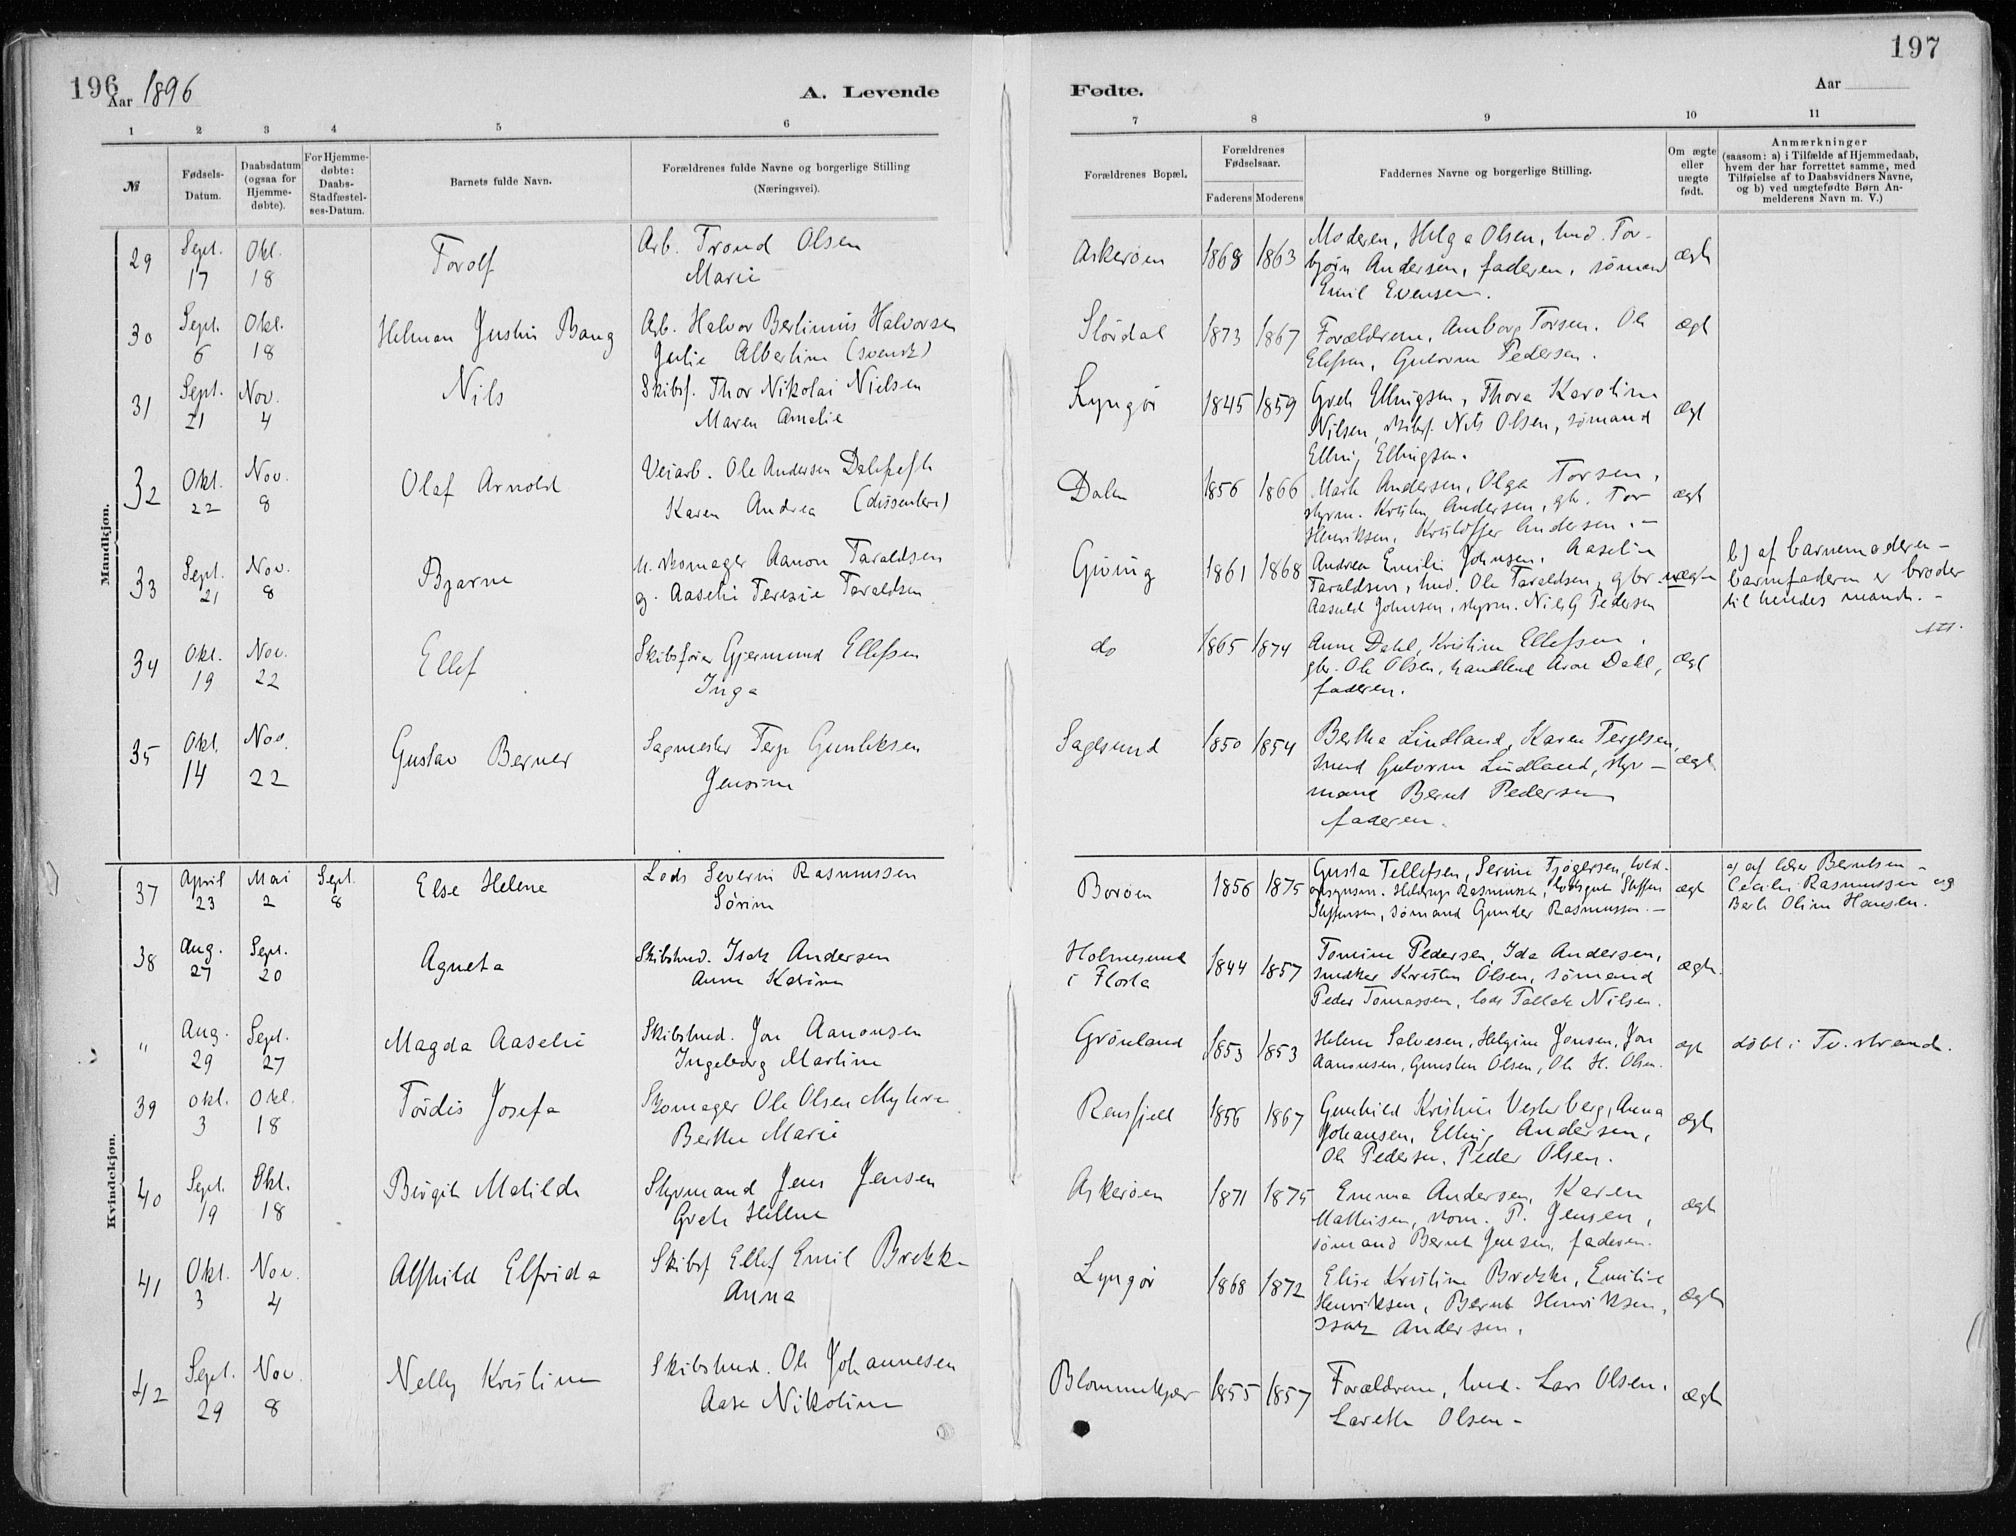 196
Aar 1896
A. Levende
Fødte.
197
Aar
1 2 3 4 5 6 7 8 9 10 11
№
Fødsels-
Datum.
Daabsdatum
(ogsaa for
Hjemme-
døbte).
For Hjemme-
døbte:
Daabs-
Stadfæstel-
ses-Datum.
Barnets fulde Navn.
Forældrenes fulde Navne og borgerlige Stilling
(Næringsvei).
Forældrenes Bopæl.
Forældrenes
Fødselsaar.
Faderens Moderens
Faddernes Navne og borgerlige Stilling.
Om ægte
eller
uægte
født.
Anmærkninger
(saasom: a) i Tilfælde af Hjemmedaab,
hvem der har forrettet samme, med
Tilføielse af to Daabsvidners Navne,
og b) ved uægtefødte Børn An-
melderens Navn m. V.)
Mandkjøn.
29
Sept.
17
Okt.
18
Torolf
Arb. Trond Olsen
Marie
Askerøen
1868 1863
Moderen, Helga Olsen, tmd. Tor-
bjørn Andersen, faderen, sømand
Emil Evensen.
ægte
30
Sept.
6
Okt.
18
Helman Justin Bang
Arb. Halvor Bertinius Halvorsen
Julie Albertine (svensk)
Størdal
1873 1867
Forældrene, Amborg Torsen, Ole
Elefsen, Gulorm Pedersen.
ægt
31
Sept.
21
Nov.
4
Nils
Skibsf. Thor Nikolai Nielsen
Maren Amalie
Lyngør
1845 1859
Grete Ellingsen, Thora Karoline
Nilsen, skibsf. Nils Olsen, sømand
Elling Ellingsen.
ægt
32
Okt.
22
Nov.
8
Olaf Arnold
Veiarb. Ole Andersen
Karen Andrea (dissentere)
Dalen
1856 1866
Marte Andersen, Olga Torsen,
styrm. Kristen Andersen, gbr. Tor
Henriksen, Kristoffer Andersen.-
ægt
33
Sept.
21
Nov.
8
Bjarne
u. skomager Aanon Taraldsen
g. Aaselie Teresie Taraldsen
Giving
1861 1868
Andrea Emilie Johnsen, Aaselie
Taraldsen, tmd. Ole Taraldsen, gbr.
Aasuld Johnsen, styrm. Nils G Pedersen
uægte
b) af barnemoderen -
barnefaderen er broder
til hendes mand. -
34
Okt.
19
Nov.
22
Ellef
Skibsfører Gjermund Ellefsen
Inga
do
1865 1874
Anne Dahl, Kristine Ellefsen,
gbr. Ole Olsen, handlende Aron Dahl,
faderen.
ægt
35
Okt.
14
Nov.
22
Gustav Berner
Sagmester Terje Gunleksen
Jensine
Saglsund
1850 1854
Bertha Lindland, Karen Terjesen,
smed Gulorm Lindland, styr-
mand Bernt Pedersen
faderen.
ægt
Kvindekjøn.
37
April
23
Mai
2
Sept.
8
Else Helene
Lods Severin Rasmussen
Sørine
Borøen
1856 1875
Gusta Tellefsen, Serine Tjøgersen, told-
Rasmussen, lodsgut Steffen
Steffensen, sømand Gunder Rasmussen. -
ægt
a) af lærer Berntsen -
Cecilie Rasmussen og
Berte Oline Hansen.
38
Aug.
27
Sept.
20
Agneta
Skibstmd. Isak Andersen
Anne Katrine
Holmesund
i Flosta
1844 1857
Tomine Pedersen, Ida Andersen,
snedker Kristen Olsen, sømand
Peder Tomassen, lods Tallak Nilsen.
ægte
"
Aug.
29
Sept.
27
Magda Aaselie
Skibstmd. Jon Aanonsen
Ingeborg Martine
Grønland
1853 1853
Helene Salvesen, Helgine Jonsen, Jon
Aanonsen, Gunsten Olsen, Ole H. Olsen.
ægt
døbt i Tv.strand.
39
Okt.
3
Okt.
18
Tordis Josefa
Skomager Ole Olsen Myhra
Berthe Marie
Rensfjell
1856 1867
Gunhild Kristine Vesterberg, Anna
Johansen, Elling Andersen,
Ole Pedersen, Peder Olsen.
ægte
40
Sept.
19
Okt.
18
Birgit Matilde
Styrmand Jens Jensen
Grete Helene
Askerøen
1871 1875
Emma Andersen, Karen
Mathisen, skom. P. Jensen,
sømand Bernt Jensen, faderen.
ægte
41
Okt.
3
Nov.
4
Alfhild Elfrida
Skibsf Ellef Emil Brekke
Anna
Lyngør
1868 1872
Elise Kristine Brekke, Emilie
Henriksen, Bernt Henriksen,
Isak Andersen.
ægte
42
Sept.
29
Nov.
8
Nelly Kristine
Skibstmd. Ole Johannesen
Aase Nikoline
Blommekjær
1855 1857
Forældrene, tmd. Lars Olsen,
Laretta Olsen -
ægte